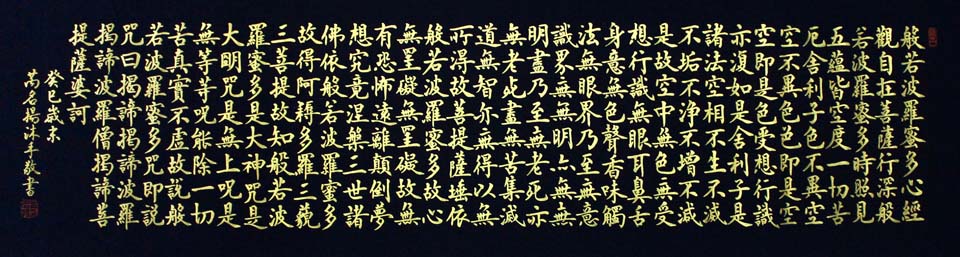 般若波羅蜜多心經
觀自在菩薩行深般
若波羅蜜多時照見
五蘊皆空度一切苦
厄舍利子色不異空
空不異色色即是空
空即是色受想行識
亦復如是舍利子是
諸法空相不生不滅
不垢不淨不增不減
是故空中無色無受
想行識無眼耳鼻舌
身意無色聲香味觸
法無眼界乃至無意
識界無無明亦無無
明盡乃至無老死亦
無老死盡無苦集滅
道無智亦無得以無
所得故菩提薩埵依
般若波羅蜜多故心
無罣礙無罣礙故無
有恐怖遠離顛倒夢
想究竟涅槃三世諸
佛依般若波羅蜜多
故得阿耨多羅三藐
三菩提故知般若波
羅蜜多是大神咒是
大明咒是無上呪是
無等等呪能除一切
苦真實不虛故說般
若波羅蜜多咒即說
咒曰揭諦揭諦波羅
揭諦波羅僧揭諦菩
提薩婆訶
癸巳歲末
沐手敬書